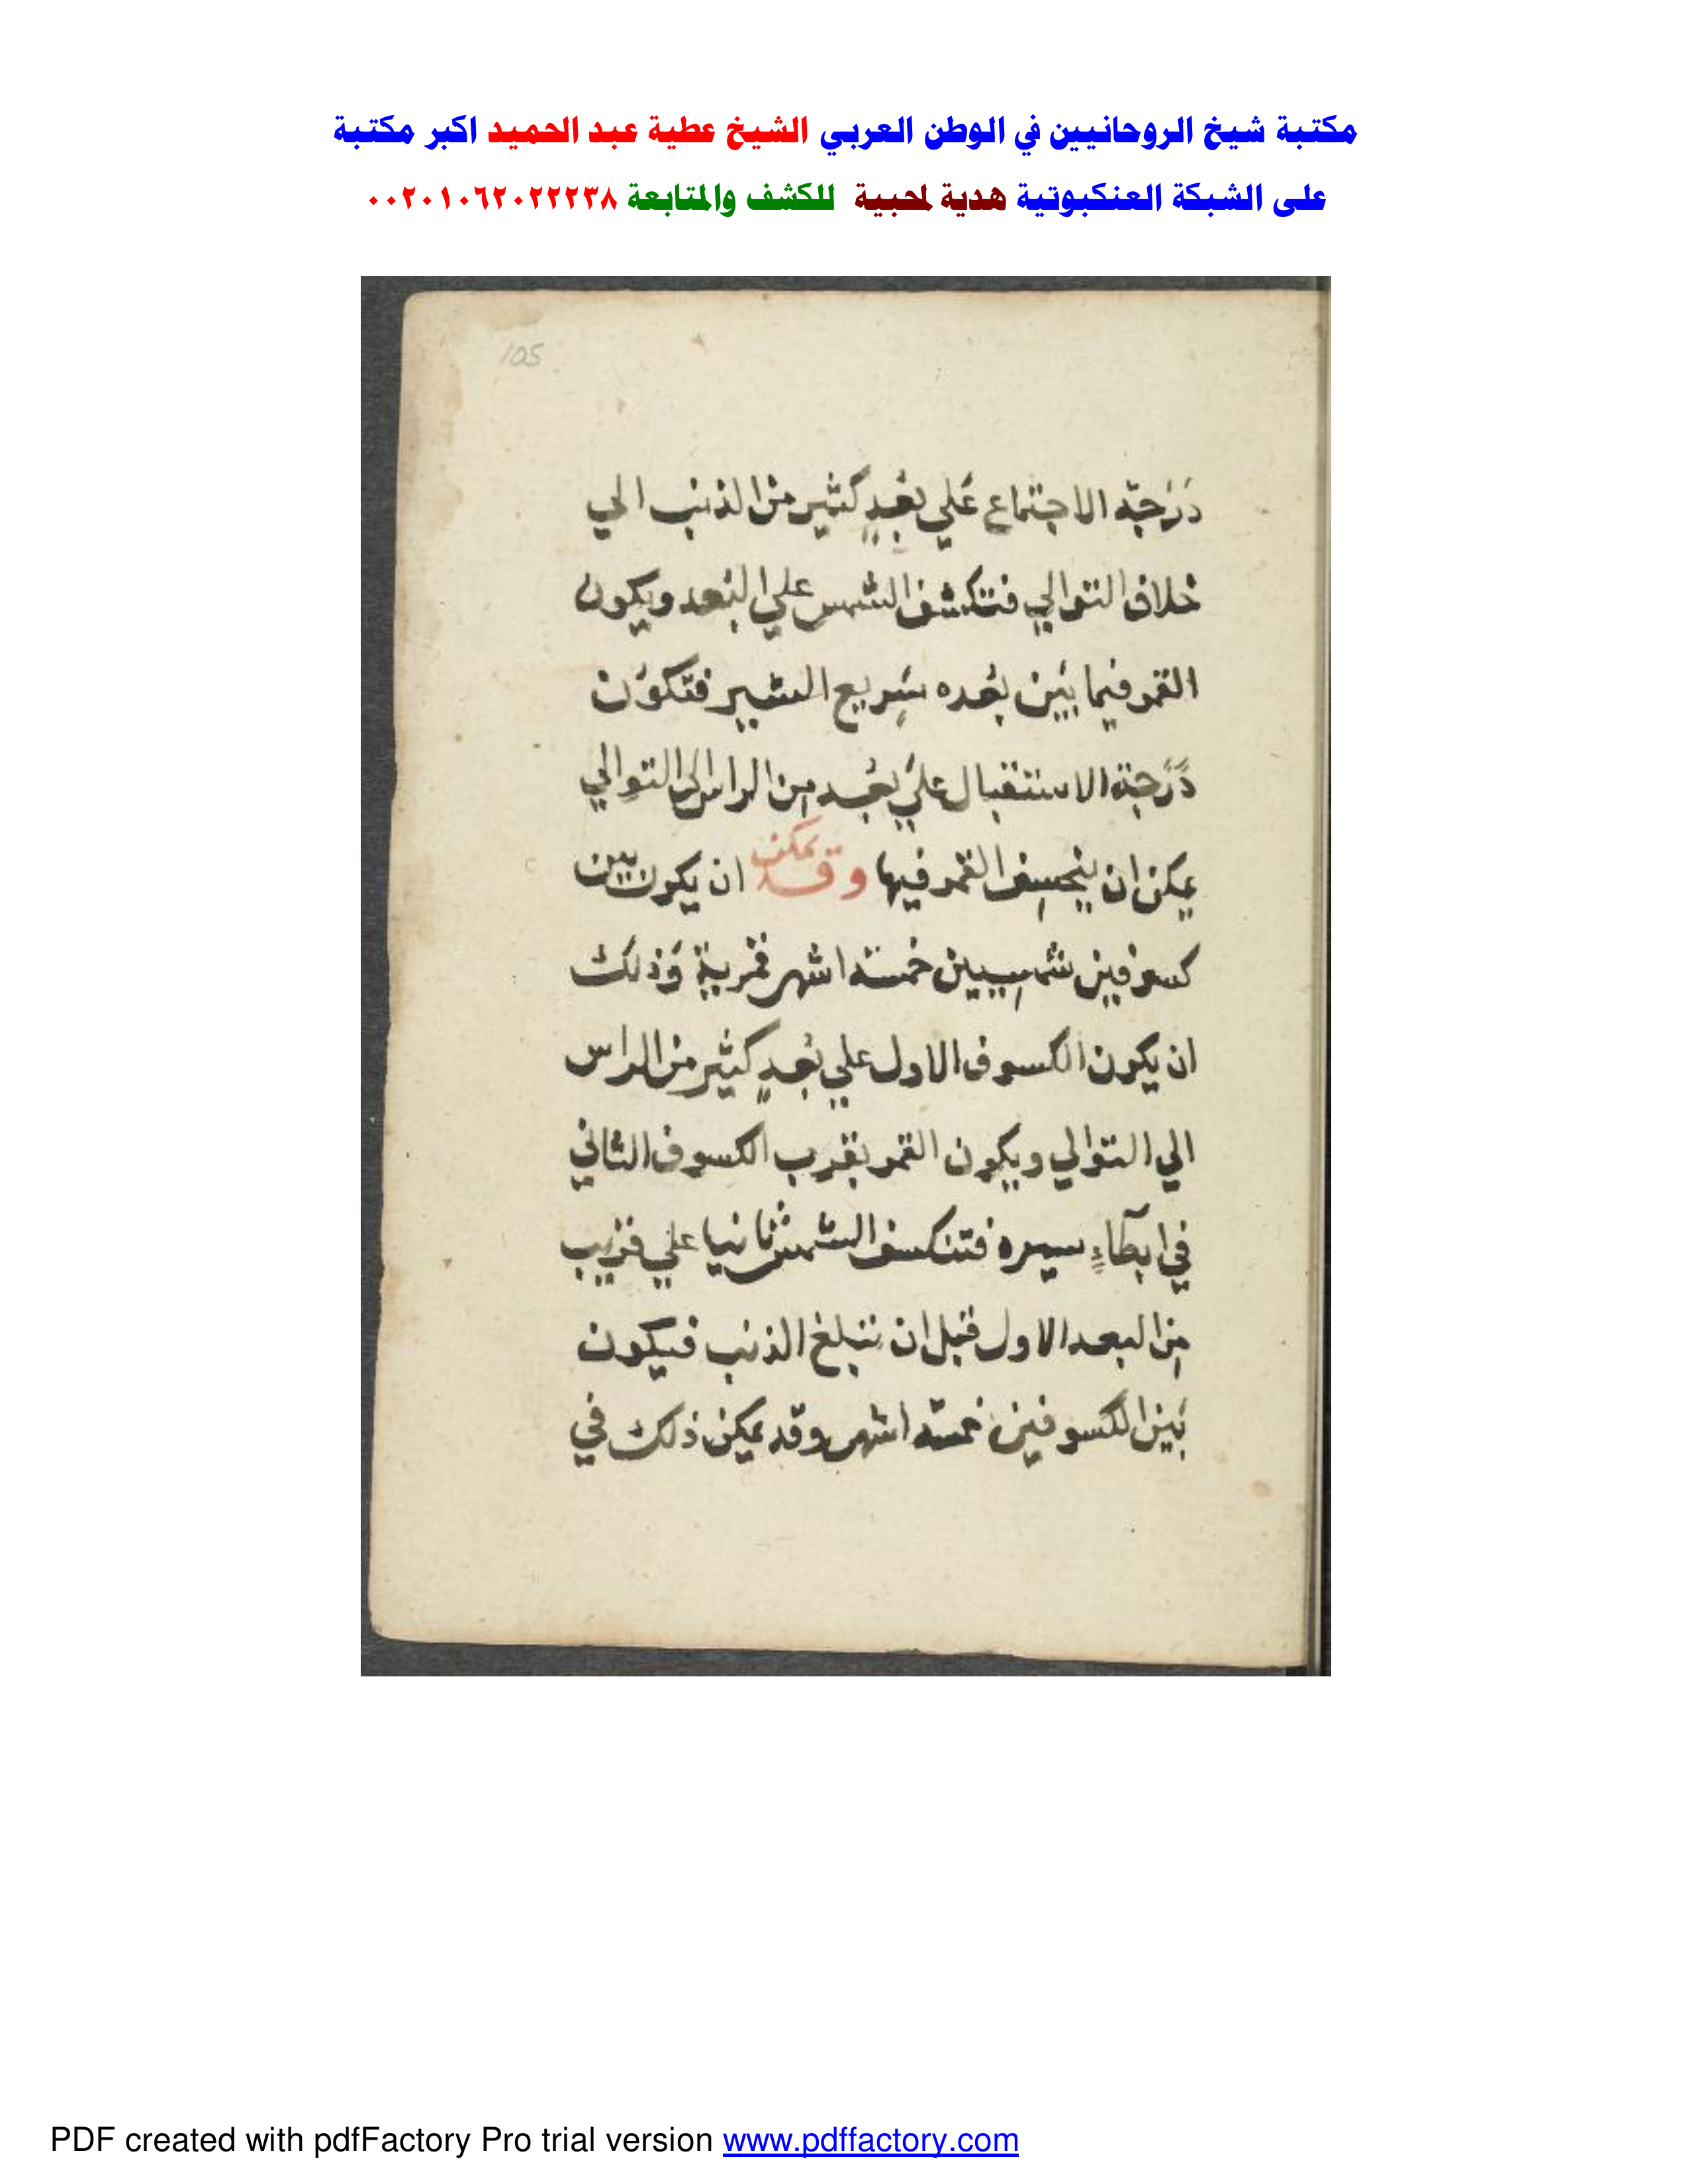 مكتبة شيخ الروحانيين في الوطن العربي الشيخ عطية عبد الحميد اكبر مكتبة
على الشبكة العنكبوتية هدية لمحبية للكشف والمتابعة ٠٠٢٠١٠٦٢٠٢٢٢٣٨
105
دَرَجَة الاجتماع عَلي بُعدٍ كثير من الذنب الي
خلاف التوالي فتنكسف الشمس علي البُعد ويكون
القمر فيما بَين بُعده سَريع السير فتكوُن
دَرَجة الاستقبال علي بُعد من الراس الي التوالي
يمكن ان ينخسف القمر فيها وقد يمكن ان يكون بين
كسوفين شمسيين خمسة اشهر قمرية وَذلك
ان يكون الكسوف الاول علي بُعدٍ كثير من الراس
الي التوالي ويكون القمر بقرب الكسوف الثاني
في ابطآءٍ سيره فتنكسف الشمش ثانيا علي قريب
من البعد الاول قبل ان تبلغ الذنب فيكون
بَين الكسوفين خمسة اشهر وقد يمكن ذلك في
PDF created with pdfFactory Pro trial version www.pdffactory.com